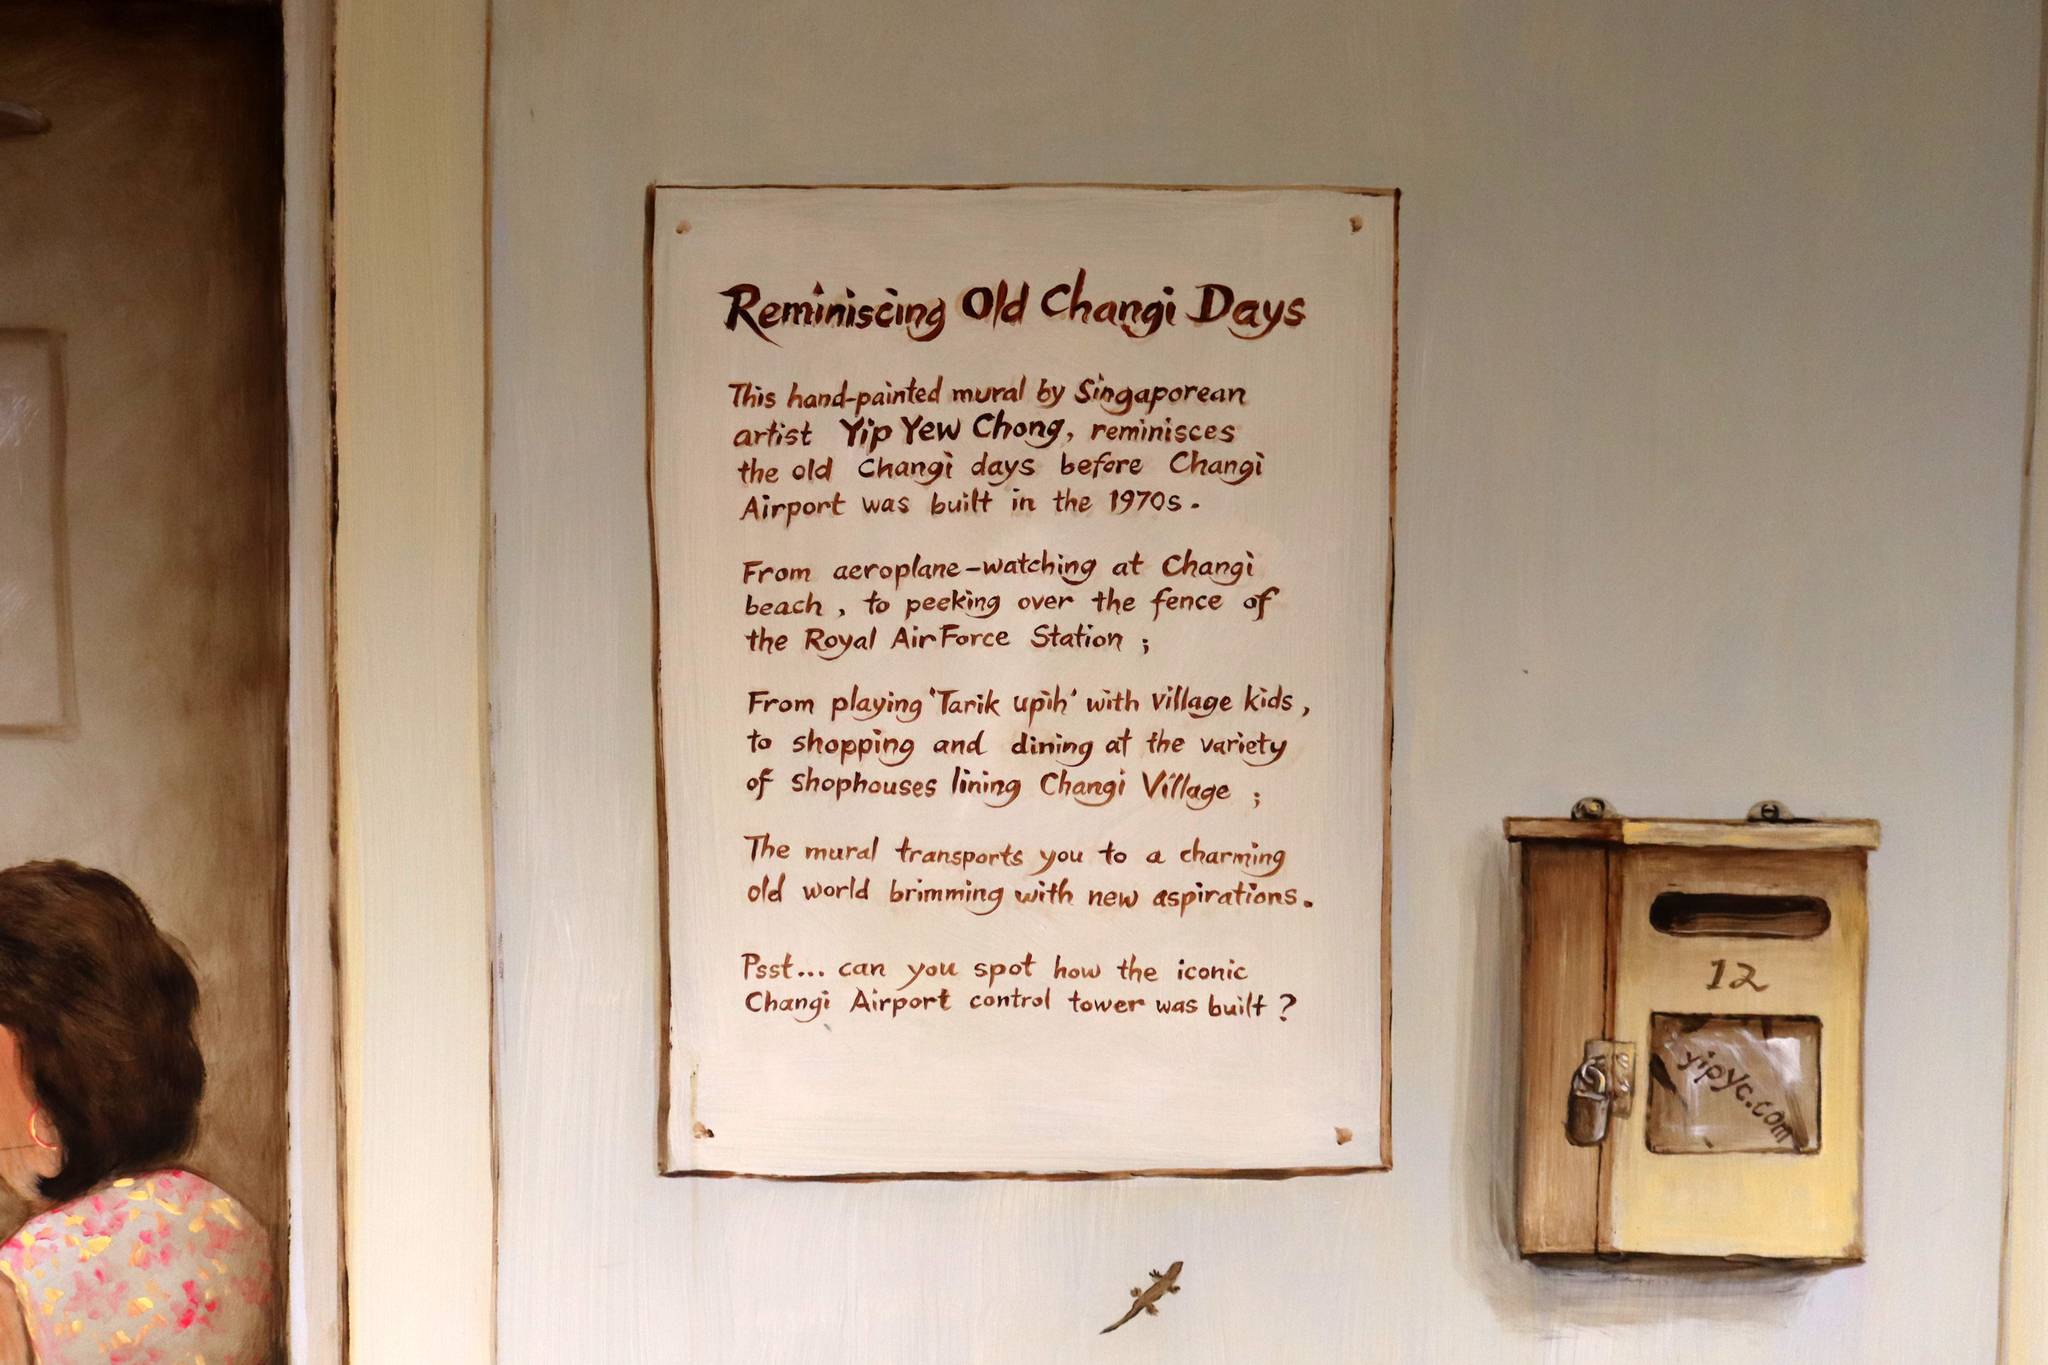 Reminiscing Old Changi Days
This hand-painted mural by Singaporean
artist Yip Yew Chong, reminisces
the old Changi days before Changi
Airport was built in the 1970s.
From aeroplane-watching at Changi
beach, to peeking over the fence of
the Royal AirForce Station;
From playing 'Tarik upih' with village kids,
to shopping and dining at the variety
of shophouses lining Changi Village;
The mural transports you to a charming
old world brimming with new aspirations.
Psst... can you spot how the iconic
Changi Airport control tower was built?
12
yipyc.com